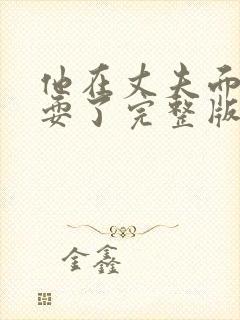 他在丈夫而
要了完整版
金鑫